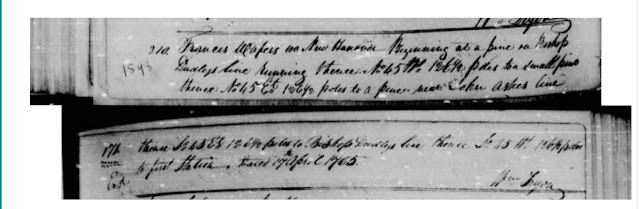 Wm Tryon
210 Francis Mafors 100 New Hanover Beginning at a pine on Bishop
1598 Dudleys line running thence No 45 Wt. 126½ poles to a small pine
thence No 45 Et 126½ poles to a pine near John Ashes line
174 thence So 45 Et 126½ poles to Bishop Dudleys line thence So 45 Wt. 126½ poles
to first Station. Dated 17th April 1765
Wm Tryon